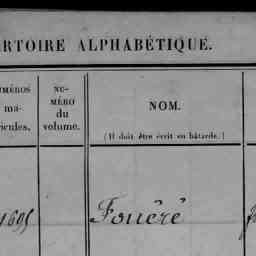 RTOIRE ALPHABÉTIQUE.
UMÉROS
ma-
ricules.
NU-
MÉRO
du
volume.
NOM.
(Il doit être écrit en bâtarde.)
1695
Fouéré